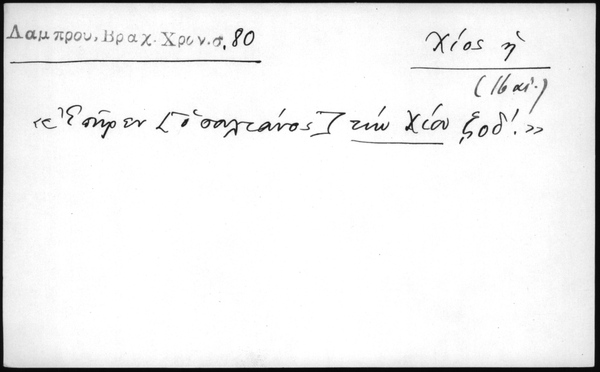 Λαμπρου, Βραχ. Χρον. σ. 80
Χίος ἡ
(16 αἰ.)
«Ἐπῆρεν [ὁ σουλτάνος] τὴν Χίον ͵ζοδ΄.»